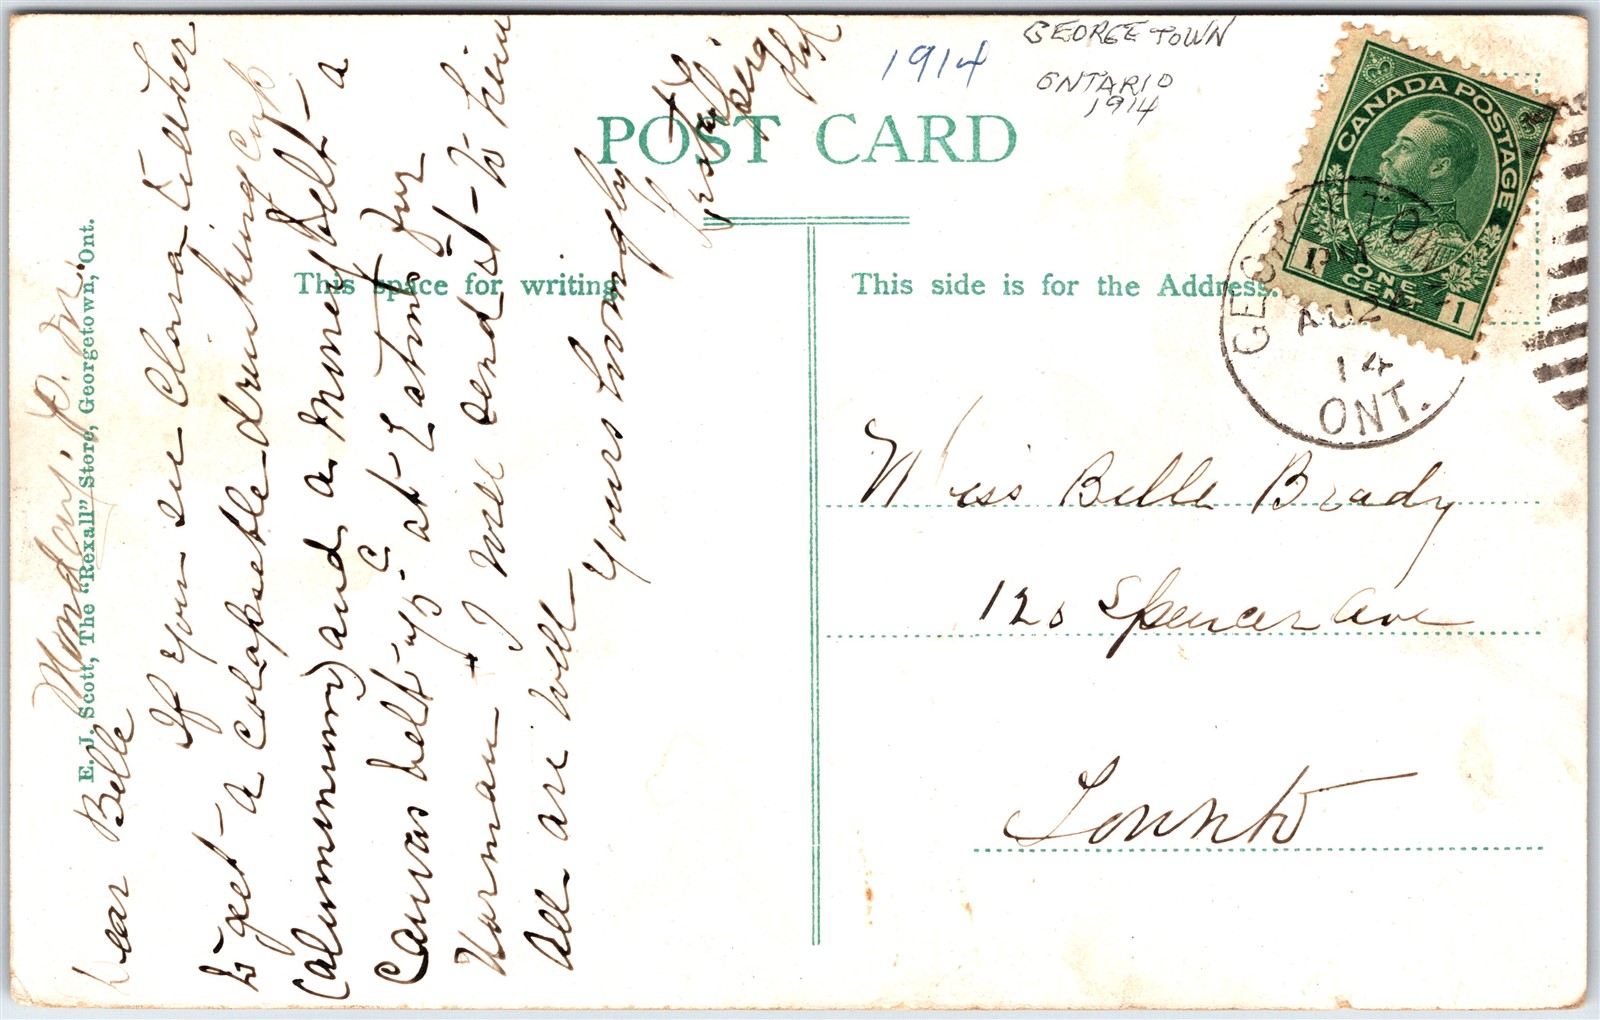 1914
GEORGETOWN
ONTARIO
1914
POST CARD
This space for writing
This side is for the Address.
CANADA POSTAGE
1 ONE CENT 1
GEORGETOWN
PM
AU 24
14
ONT.
E. J. Scott, The "Rexall" Store, Georgetown, Ont.
Monday, P.M.
Dear Belle
If you see Clara Tell her
to get a colapseble drinking cup
(alumunum) and a money belt - a
canvas belt - up at Eatons for
Norman - I will send it - to him
All are well
Yours lovingly
Miss Belle Brady
120 Spencer Ave
Toronto